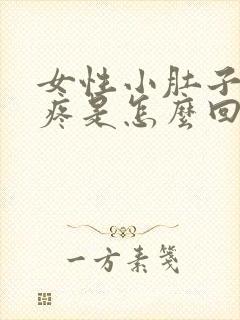 女性小肚子
疼是怎麼回
一方素箋